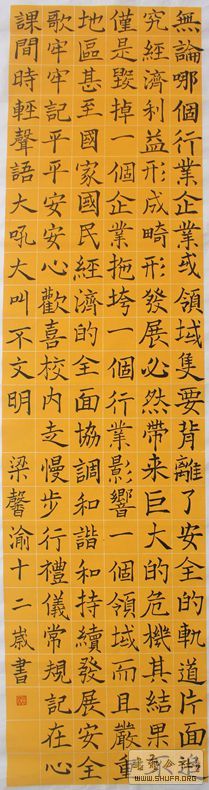 無論哪個行業企業或領域隻要背離了安全的軌道片面追
究經濟利益形成畸形發展必然帶来巨大的危機其結果
僅是毀掉一個企業拖垮一個行業影響一個領域而且嚴重
地區甚至國家國民經濟的全面協調和諧和持續發展安全
歌牢牢記平平安安心歡喜校内走慢步行禮儀常規記在心
課間時輕聲語大吼大叫不文明 梁馨渝十二歲書
WWW.SHUFA.ORG